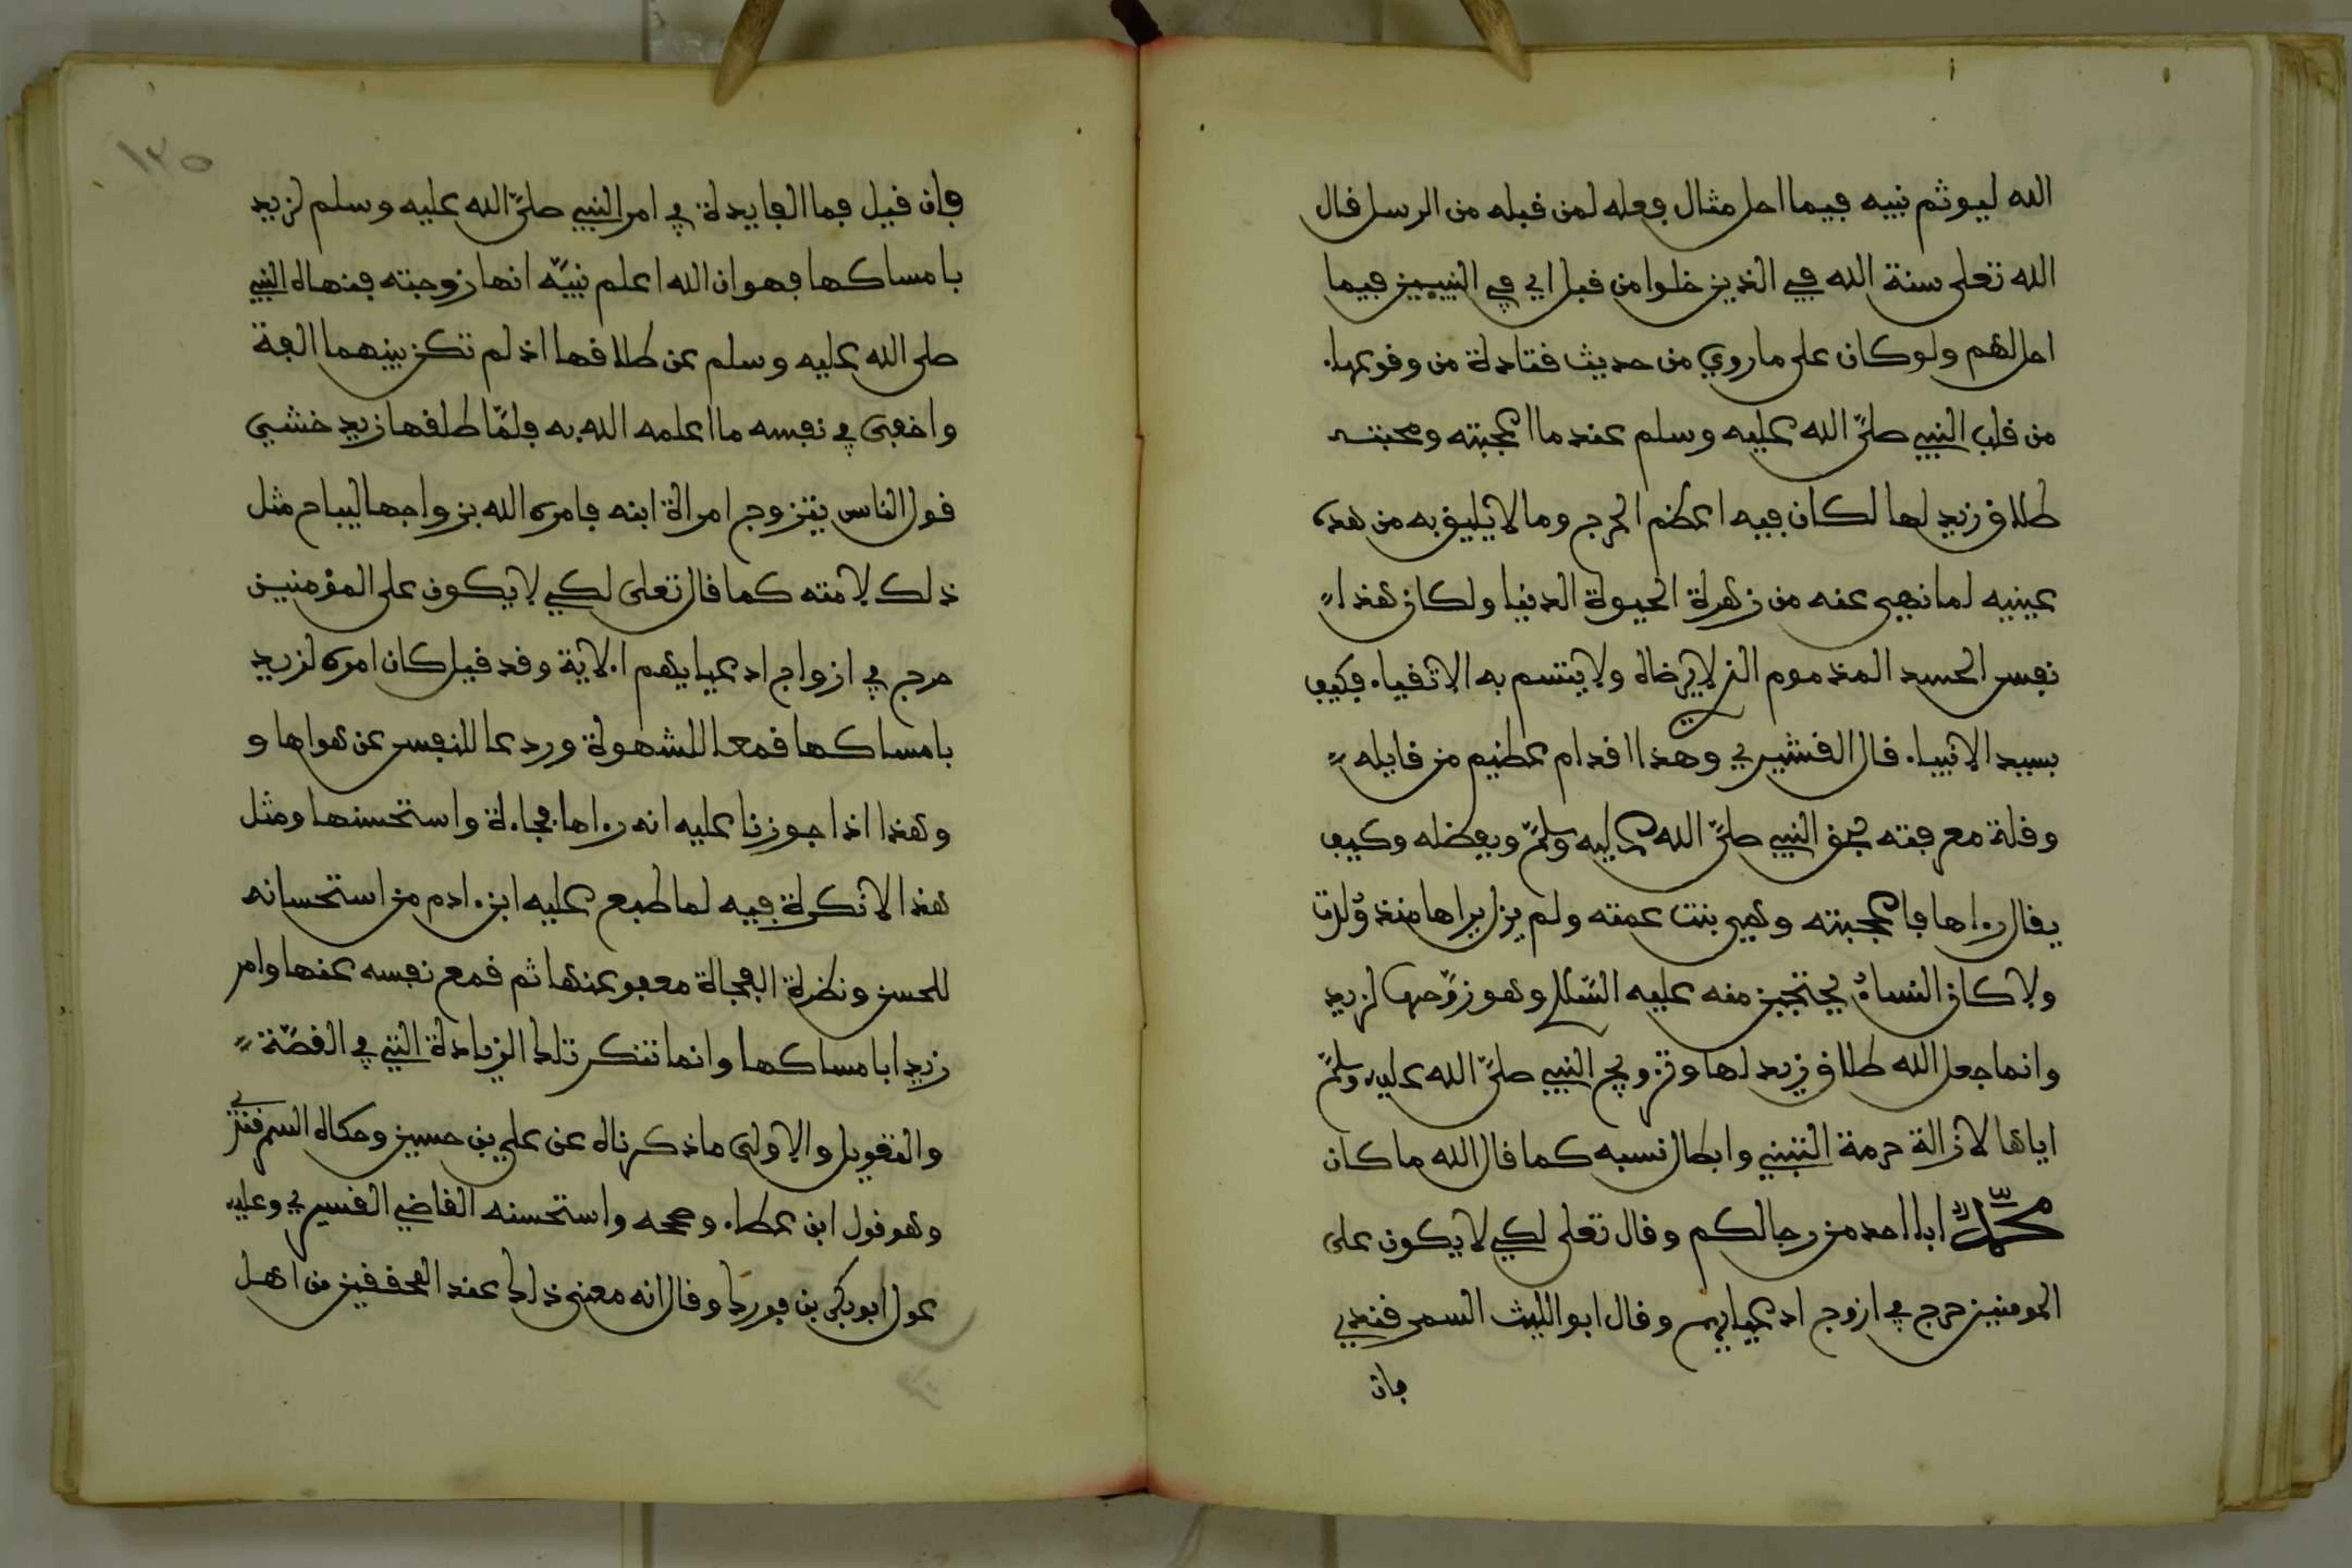 الله ليوثم نبيه فيما احل مثال فعله لمن قبله من الرسل قال
الله تعلى سنة الله في الذين خلوا من قبل اي في النبيين فيما
احل لهم ولو كان على ما روي من حديث قتادة من وقوعها
من قلب النبي صلى الله عليه وسلم عند ما اعجبته ومحبته
طلاق زيد لها لكان فيه اعظم الحرج وما لا يليق به من مده
عينيه لما نهي عنه من زهرة الحيوة الدنيا ولكان هذا
نفس الحسد المذموم الذي لا يرضاه ولا يتسم به الاتقياء فكيف
بسيد الانبياء قال القشيري وهذا اقدام عظيم من قايله
وقلة معرفته بحق النبي صلى الله عليه وسلم وبفضله وكيف
يقال رءاها فاعجبته وهي بنت عمته ولم يزل يراها منذ ولدت
ولا كان النساء يحتجبن منه عليه السلام وهو زوجها لزيد
وانما جعل الله طلاق زيد لها وتزويج النبي صلى الله عليه وسلم
اياها لازالة حرمة التبني وابطال نسبه كما قال الله ما كان
محمد ابا احد من رجالكم وقال تعلى لكي لا يكون على
المومنين حرج في ازوج ادعيايهم وقال ابو الليث السمرقندي
فان
١٣٥
فإن قيل فما الفايدة في امر النبي صلى الله عليه وسلم لزيد
بامساكها فهو ان الله اعلم نبيه انها زوجته فنهاه النبي
صلى الله عليه وسلم عن طلاقها اذ لم تكن بينهما الفة
واخفى في نفسه ما اعلمه الله به فلما طلقها زيد خشي
قول الناس يتزوج امراة ابنه فامره الله بزواجها ليباح مثل
ذلك لامته كما قال تعلى لكي لا يكون على المؤمنين
حرج في ازواج ادعيايهم الاية وقد قيل كان امره لزيد
بامساكها قمعا للشهوة وردعا للنفس عن هواها و
وهذا اذا جوزنا عليه انه رءاها فجاءة واستحسنها ومثل
هذا لا نكرة فيه لما طبع عليه ابن ءادم من استحسانه
للحسن ونظرة الفجاة معفو عنها ثم قمع نفسه عنها وامر
زيدا بامساكها وانما تنكر تلك الزيادة التي في القصة
والتعويل والاولى ما ذكرناه عن علي بن حسين وحكاه السمرقندي
وهو قول ابن عطاء وصححه واستحسنه القاضي القسيري وعليه
عول ابو بكر بن فورك وقال انه معنى ذلك عند المحققين من اهل